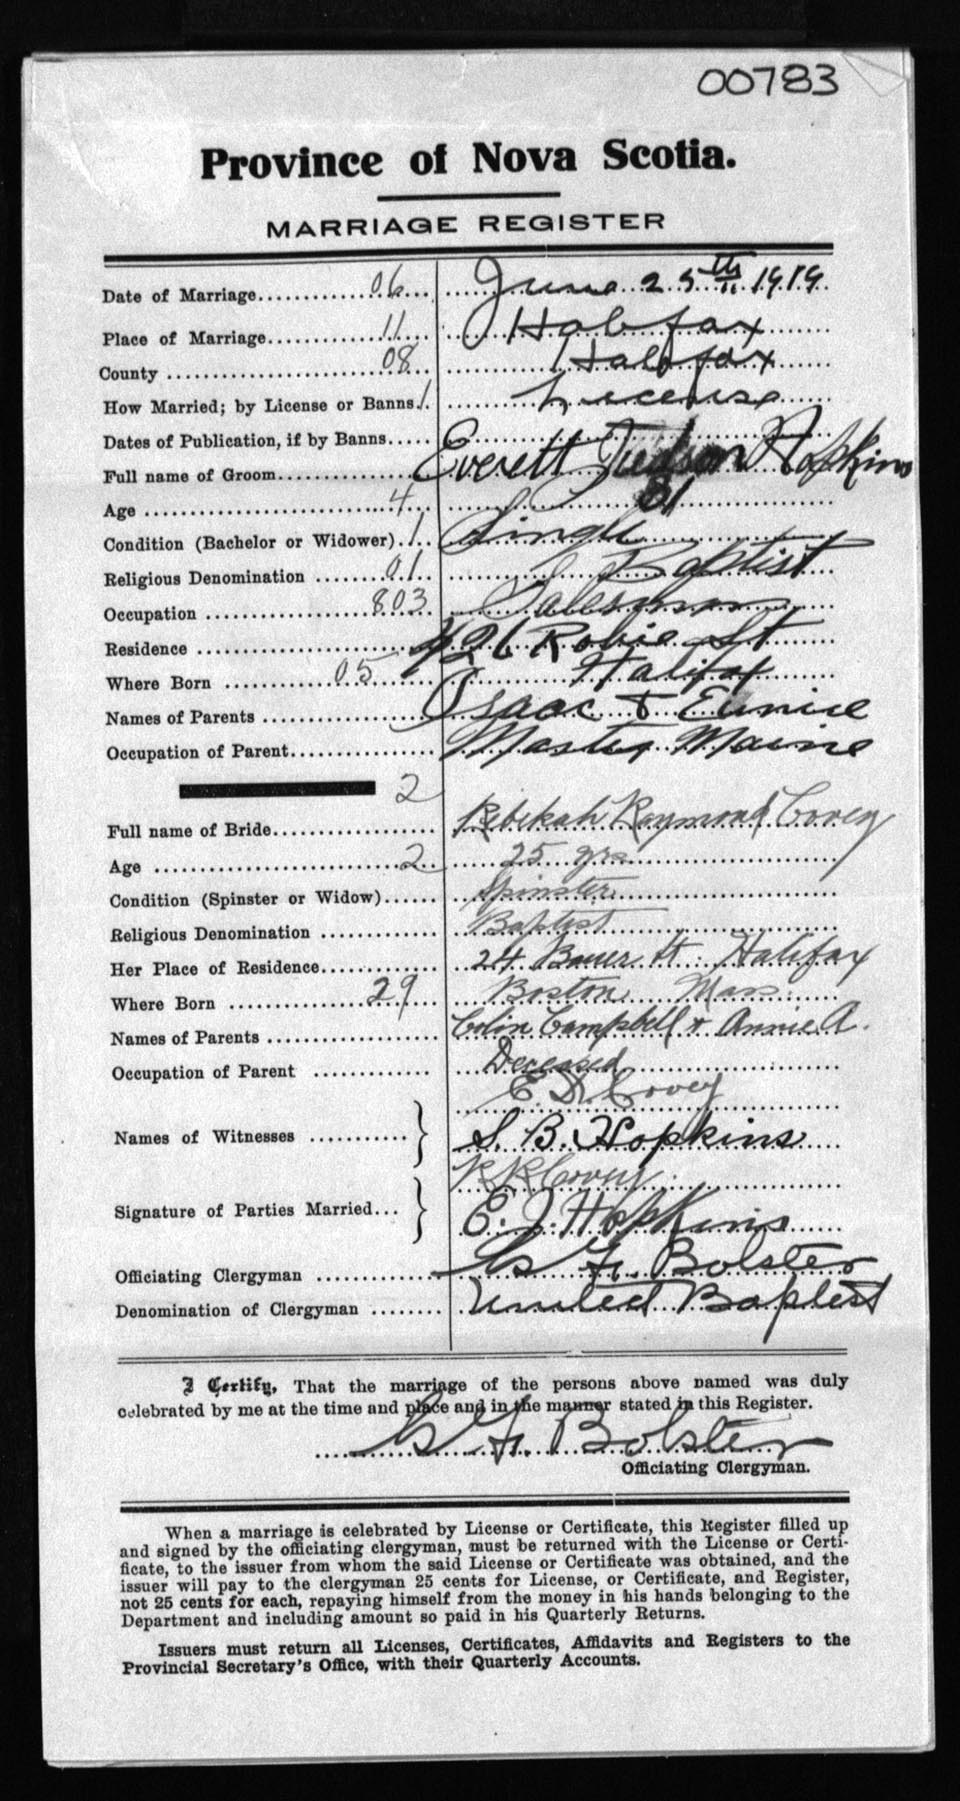 00783
Province of Nova Scotia.
MARRIAGE REGISTER
Date of Marriage 06 June 25th 1919
Place of Marriage 11 Halifax
County 08 Halifax
How Married; by License or Banns 1 License
Dates of Publication, if by Banns
Full name of Groom Everett Judson Hopkins
Age 4 31
Condition (Bachelor or Widower) 1 Single
Religious Denomination 01 Baptist
Occupation 803 Salesman
Residence 426 Robie St
Where Born 05 Halifax
Names of Parents Isaac & Eunice
Occupation of Parent Master Marine
2
Full name of Bride Rebekah Raymond Covey
Age 2 25 yrs
Condition (Spinster or Widow) Spinster
Religious Denomination Baptist
Her Place of Residence 24 Bauer St. Halifax
Where Born 29 Boston Mass
Names of Parents Colin Campbell & Annie A.
Occupation of Parent Deceased
E. Covey
Names of Witnesses S. B. Hopkins
R R Covey
Signature of Parties Married E. J. Hopkins
Officiating Clergyman Bolster
Denomination of Clergyman United Baptist
I Certify, That the marriage of the persons above named was duly
celebrated by me at the time and place and in the manner stated in this Register.
Bolster
Officiating Clergyman.
When a marriage is celebrated by License or Certificate, this Register filled up
and signed by the officiating clergyman, must be returned with the License or Certi-
ficate, to the issuer from whom the said License or Certificate was obtained, and the
issuer will pay to the clergyman 25 cents for License, or Certificate, and Register,
not 25 cents for each, repaying himself from the money in his hands belonging to the
Department and including amount so paid in his Quarterly Returns.
Issuers must return all Licenses, Certificates, Affidavits and Registers to the
Provincial Secretary's Office, with their Quarterly Accounts.